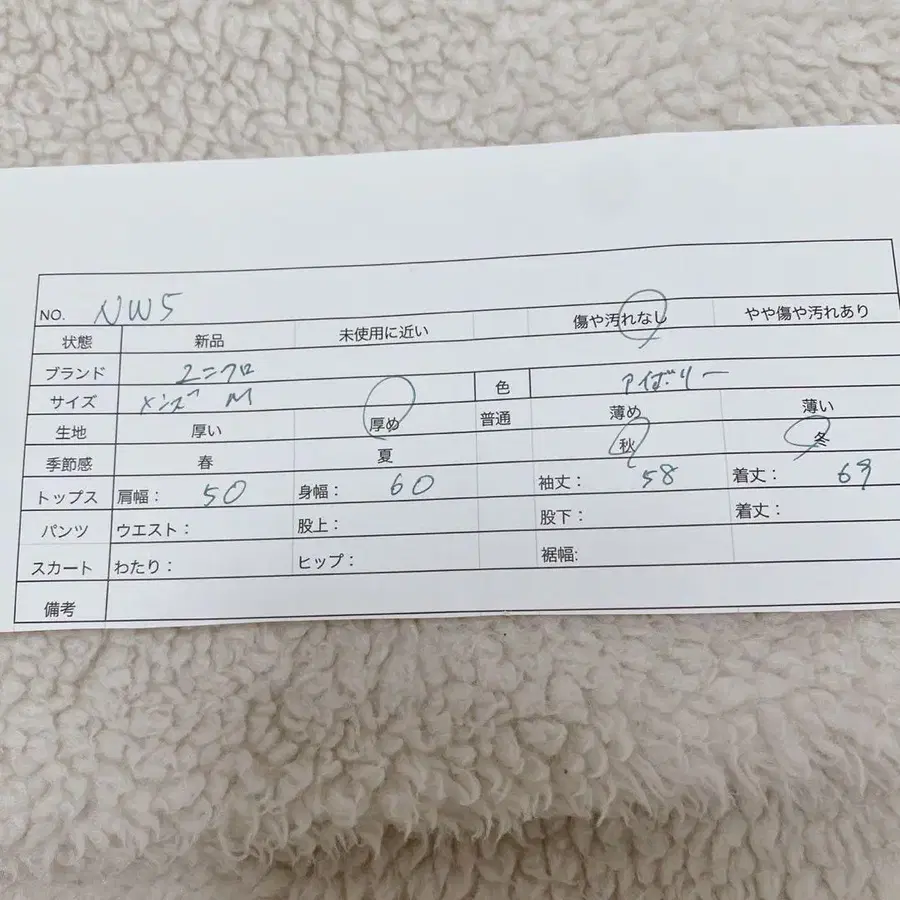 NO. NW5
状態 新品 未使用に近い 傷や汚れなし やや傷や汚れあり
ブランド ユニクロ
サイズ メンズ M 色 アイボリー
生地 厚い 厚め 普通 薄め 薄い
季節感 春 夏 秋 冬
トップス 肩幅： 50 身幅： 60 袖丈： 58 着丈： 69
パンツ ウエスト： 股上： 股下： 着丈：
スカート わたり： ヒップ： 裾幅:
備考